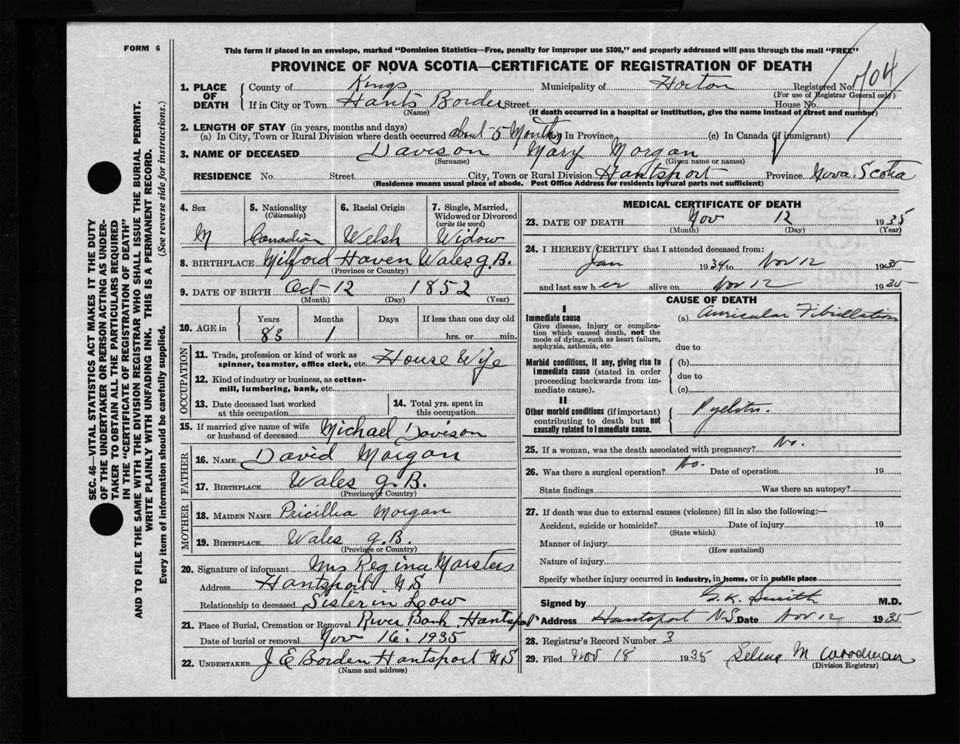 FORM 6
This form if placed in an envelope, marked "Dominion Statistics—Free, penalty for improper use $300," and properly addressed will pass through the mail "FREE"
PROVINCE OF NOVA SCOTIA—CERTIFICATE OF REGISTRATION OF DEATH
1. PLACE OF DEATH
County of Kings Municipality of Horton Registered No. 704
(For use of Registrar General only)
If in City or Town Hants Border Street House No.
(Name) (If death occurred in a hospital or institution, give the name instead of street and number)
2. LENGTH OF STAY (in years, months and days)
(a) In City, Town or Rural Division where death occurred about 5 Months In Province (c) In Canada (if immigrant)
3. NAME OF DECEASED Davison Mary Morgan
(Surname) (Given name or names)
RESIDENCE No. Street City, Town or Rural Division Hantsport Province Nova Scotia
(Residence means usual place of abode. Post Office Address for residents by rural parts not sufficient)
4. Sex
5. Nationality (Citizenship)
6. Racial Origin
7. Single, Married, Widowed or Divorced (write the word)
Canadian Welsh Widow
8. BIRTHPLACE Milford Haven Wales G.B.
(Province or Country)
9. DATE OF BIRTH Oct 12 1852
(Month) (Day) (Year)
10. AGE in
Years Months Days If less than one day old
83 1 hrs. or min.
OCCUPATION
11. Trade, profession or kind of work as House Wife
spinner, teamster, office clerk, etc.
12. Kind of industry or business, as cotton-
mill, lumbering, bank, etc.
13. Date deceased last worked at this occupation
14. Total yrs. spent in this occupation
15. If married give name of wife or husband of deceased Michael Davison
FATHER
16. NAME David Morgan
17. BIRTHPLACE Wales G.B.
(Province or Country)
MOTHER
18. MAIDEN NAME Pricillia Morgan
19. BIRTHPLACE Wales G.B.
(Province or Country)
20. Signature of informant Mrs Regina Marsters
Address Hantsport N S
Relationship to deceased Sister in Law
21. Place of Burial, Cremation or Removal River Bank Hantsport
Date of burial or removal Nov 16. 1935
22. UNDERTAKER J E Borden Hantsport N S
(Name and address)
MEDICAL CERTIFICATE OF DEATH
23. DATE OF DEATH Nov 12 1935
(Month) (Day) (Year)
24. I HEREBY CERTIFY that I attended deceased from:
Jan 1934 to Nov 12 1935
and last saw h er alive on Nov 12 1935
CAUSE OF DEATH
I
Immediate cause
Give disease, injury or complica-
tion which caused death, not the
mode of dying, such as heart failure,
asphyxia, asthenia, etc.
(a) Auricular Fibrillation
due to
Morbid conditions, if any, giving rise to
immediate cause (stated in order
proceeding backwards from im-
mediate cause).
(b)
due to
(c)
II
Other morbid conditions (if important)
contributing to death but not
causally related to immediate cause.
25. If a woman, was the death associated with pregnancy? No.
26. Was there a surgical operation? No. Date of operation 19
State findings Was there an autopsy?
27. If death was due to external causes (violence) fill in also the following:—
Accident, suicide or homicide? Date of injury 19
(State which)
Manner of injury
(How sustained)
Nature of injury
Specify whether injury occurred in industry, in home, or in public place
Signed by G.K. Smith M.D.
Address Hantsport N.S. Date Nov 12 1935
28. Registrar's Record Number 3
29. Filed Nov 18 1935 Selina M Woodman
(Division Registrar)
SEC. 46—VITAL STATISTICS ACT MAKES IT THE DUTY
OF THE UNDERTAKER OR PERSON ACTING AS UNDER-
TAKER TO OBTAIN ALL THE PARTICULARS REQUIRED
IN THE "CERTIFICATE OF REGISTRATION OF DEATH"
AND TO FILE THE SAME WITH THE DIVISION REGISTRAR WHO SHALL ISSUE THE BURIAL PERMIT.
WRITE PLAINLY WITH UNFADING INK. THIS IS A PERMANENT RECORD.
Every item of information should be carefully supplied. (See reverse side for instructions.)